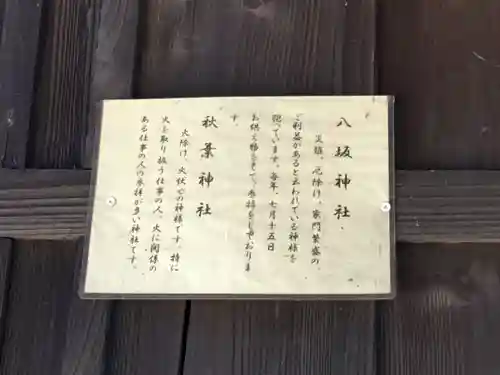 八坂神社
災難、厄除け、家門繁盛の、
ご利益があると云われている神様を
祀っています。毎年、七月十五日
お供え物をして、参拝をしております
す。
秋葉神社
火除け、火伏せの神様です。特に
火を取り扱う仕事の人、火に関係の
ある仕事の人の参拝が多い神社です。